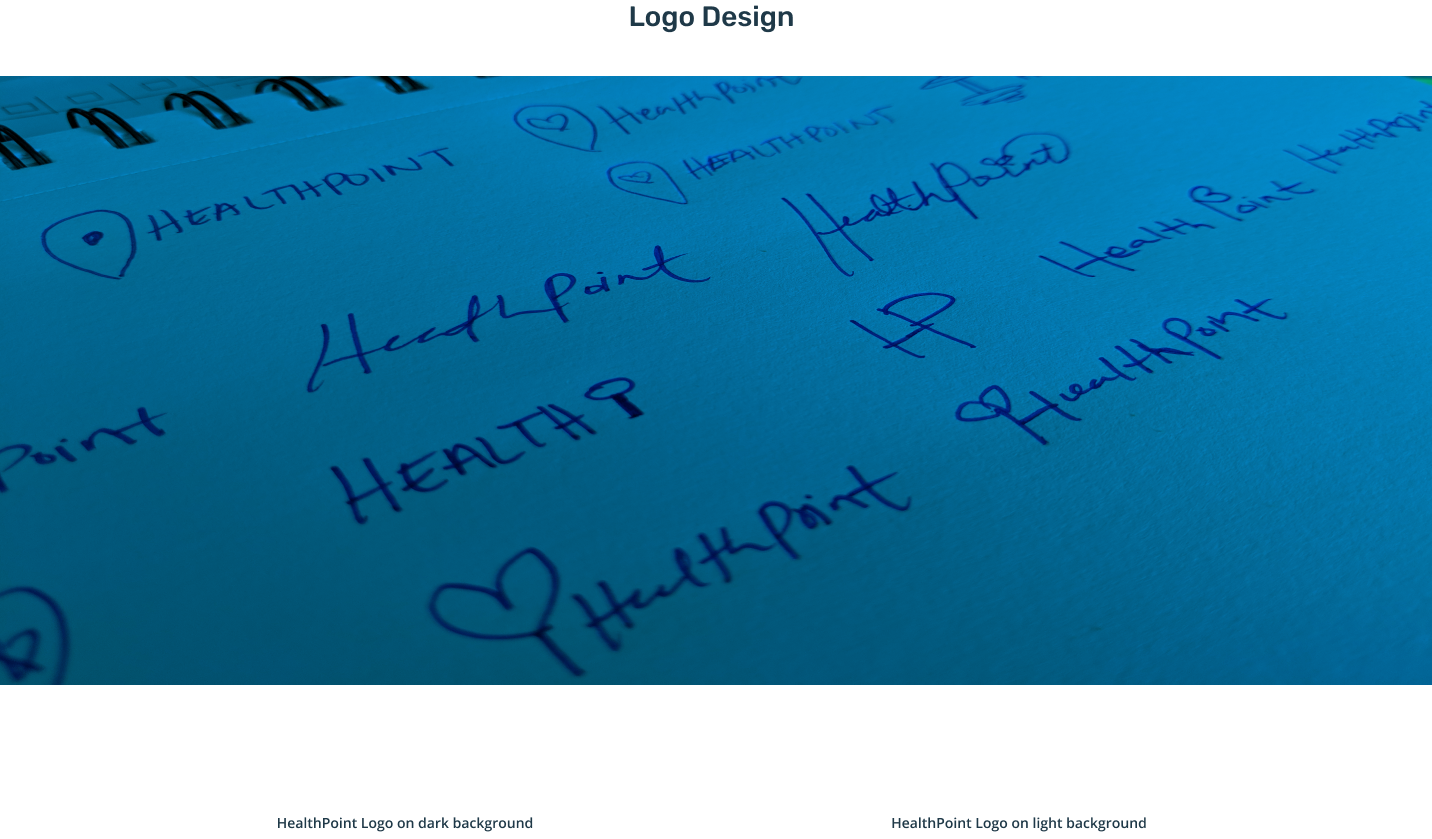 Logo Design
HealthPoint
HEALTHPOINT
HEALTHPOINT
HealthPoint
HealthPoint
Health Point
HealthPoint
HP
HealthPoint
Point
HEALTH
HealthPoint
HealthPoint Logo on dark background
HealthPoint Logo on light background